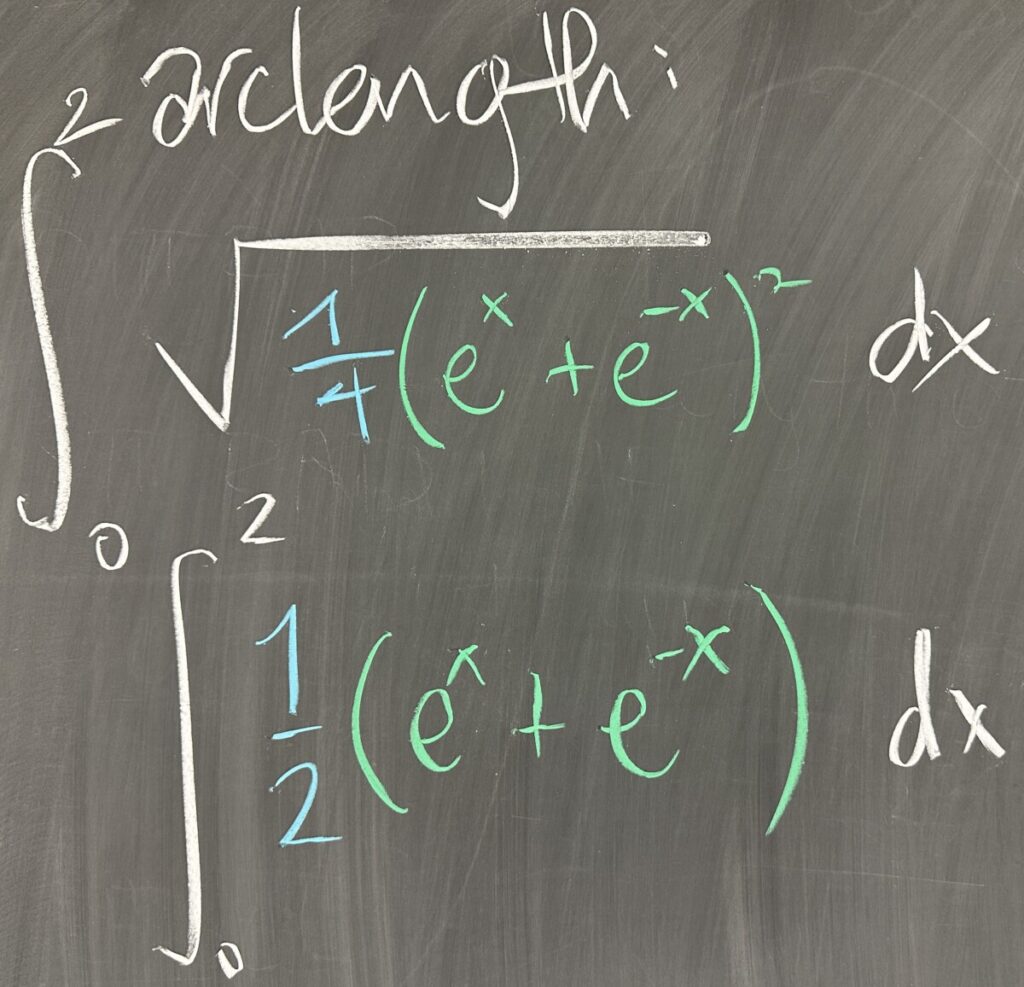 arclength:
∫₀² √(1/4 (eˣ + e⁻ˣ)²) dx
∫₀² 1/2 (eˣ + e⁻ˣ) dx